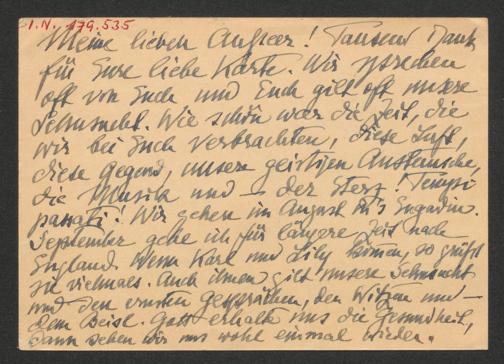 I.N. 179.535
Meine lieben Ausseer! Tausend Dank
für Eure liebe Karte. Wir sprechen
oft von Euch und Euch gilt oft unsere
Sehnsucht. Wie schön war die Zeit, die
wir bei Euch verbrachten, diese Luft,
diese Gegend, unsere geistigen Austausche,
die Musik und – der Sterz! Tempi
passati! Wir gehen im August ins Engadin.
September gehe ich für längere Zeit nach
England. Wenn Karl und Lily kommen, so grüßt
sie vielmals. Auch ihnen gilt unsere Sehnsucht
und den ernsten Gesprächen, den Witzen und –
dem Beisl. Gott erhalte uns die Gesundheit,
dann sehen wir uns wohl einmal wieder.